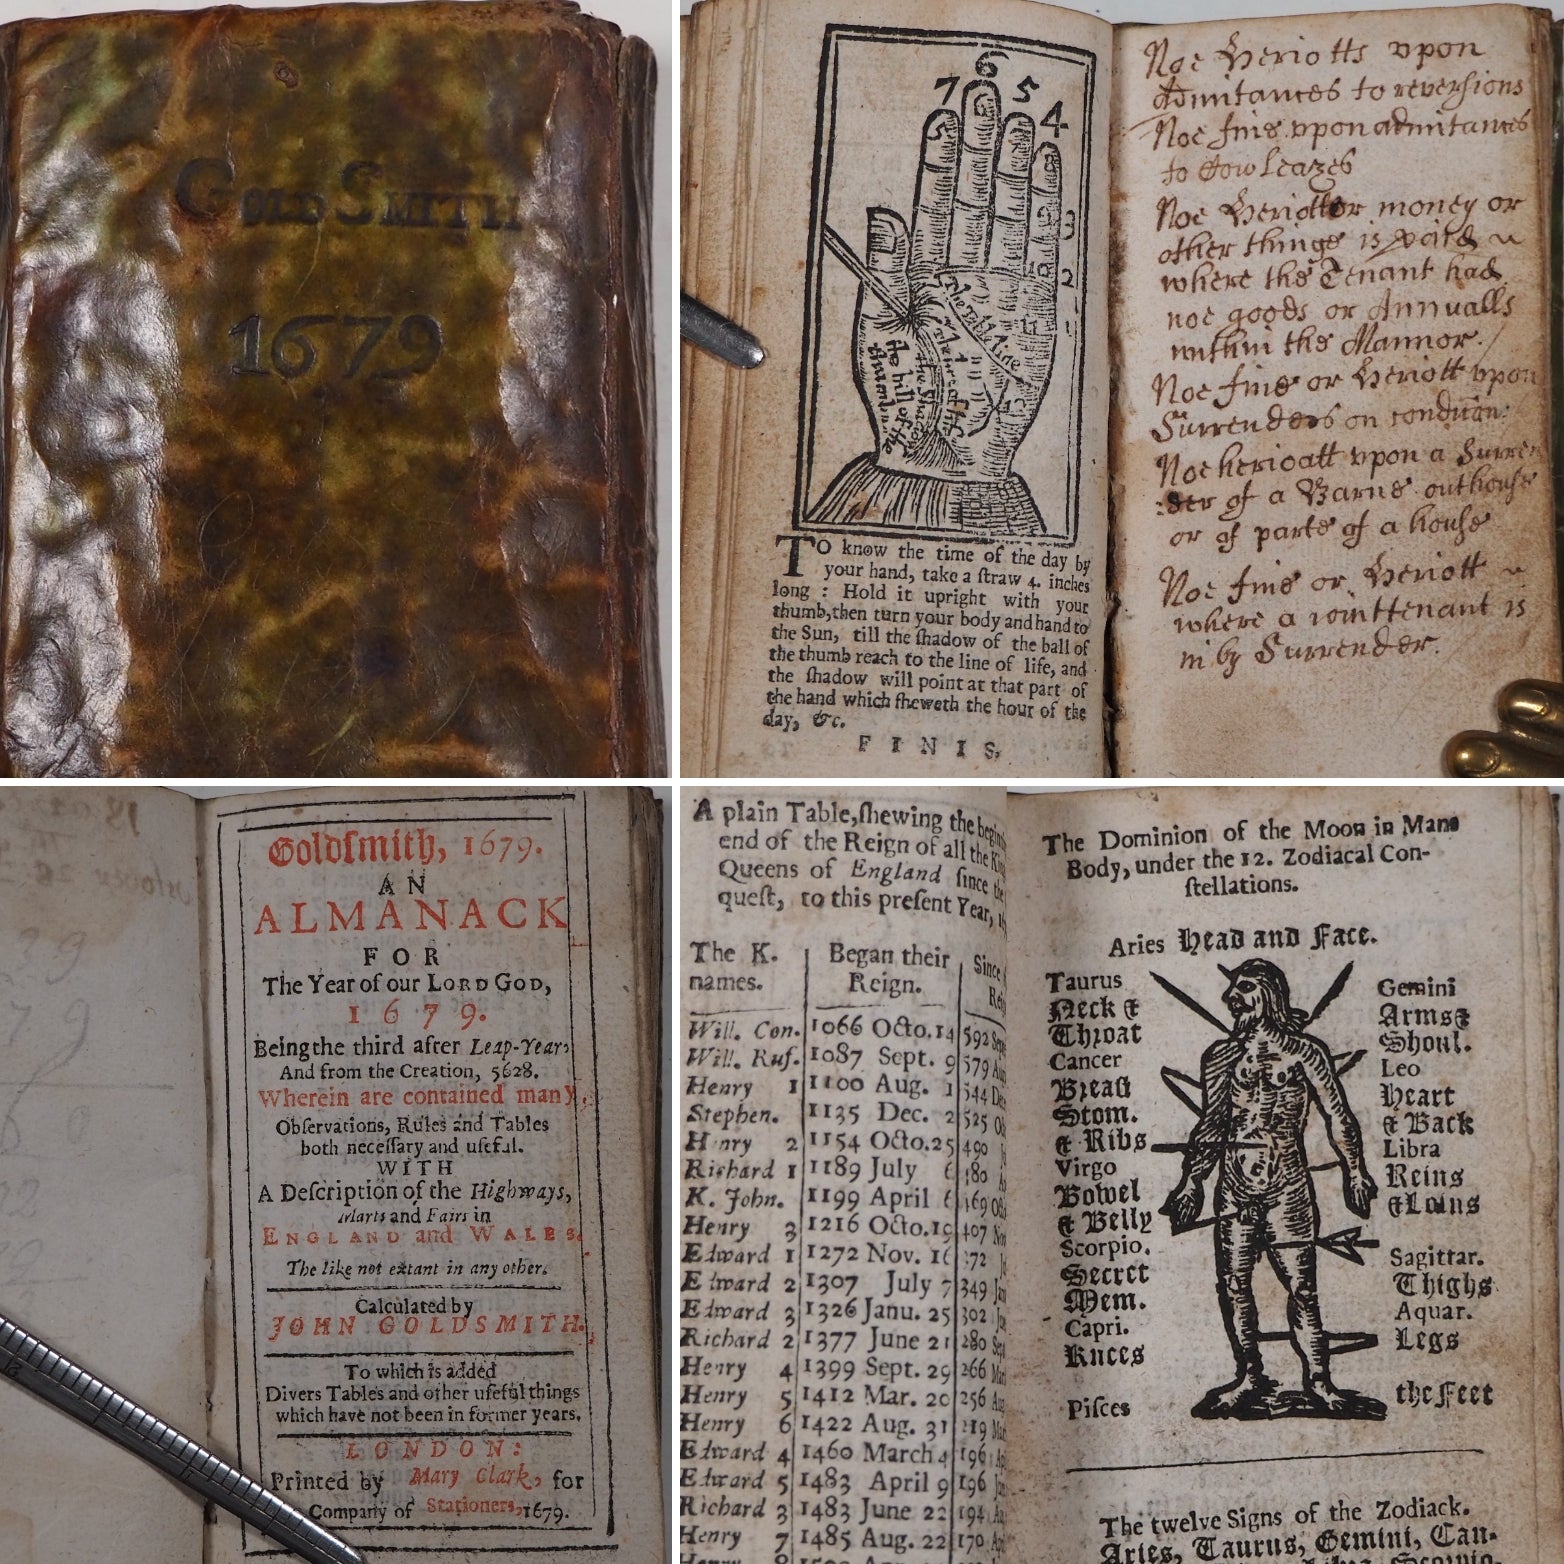 GOLDSMITH
1679
7 6 5 4
3
2
1
10
11
12
The Table line
TO know the time of the day by
your hand, take a ſtraw 4. inches
long : Hold it upright with your
thumb, then turn your body and hand to
the Sun, till the ſhadow of the ball of
the thumb reach to the line of life, and
the ſhadow will point at that part of
the hand which ſheweth the hour of the
day, &c.
FINIS,
Noe Heriotts vpon
Admitances to reversions
Noe fine vpon admitances
to Cow leazes
Noe Heriott or money or
other things is
where the Tenant had
noe goods or Annualls
within the Mannor.
Noe fine or Heriott vpon
Surrenders on condition:
Noe herioatt vpon a Surren
:der of a Barne outhouse
or of parte of a house
Noe fine or Heriott
where a iointtenant is
in by Surrender.
Goldſmith, 1679.
AN
ALMANACK
FOR
The Year of our LORD GOD,
1679.
Being the third after Leap-Year,
And from the Creation, 5628.
Wherein are contained many
Obſervations, Rules and Tables
both neceſſary and uſeful.
WITH
A Deſcription of the Highways,
Marts and Fairs in
ENGLAND and WALES.
The like not extant in any other.
Calculated by
JOHN GOLDSMITH.
To which is added
Divers Tables and other uſeful things
which have not been in former years.
LONDON:
Printed by Mary Clark, for
Company of Stationers, 1679.
A plain Table, ſhewing the
end of the Reign of all the
Queens of England ſince the
queſt, to this preſent Year,
The K. names. Began their Reign. Since
Will. Con. 1066 Octo. 14 592
Will. Ruf. 1087 Sept. 9 579
Henry 1 1100 Aug. 1 544
Stephen. 1135 Dec. 2 525
Henry 2 1154 Octo. 25 490
Richard 1 1189 July 6 480
K. John. 1199 April 6 469
Henry 3 1216 Octo. 19 407
Edward 1 1272 Nov. 16 372
Edward 2 1307 July 7 349
Edward 3 1326 Janu. 25 302
Richard 2 1377 June 21 280
Henry 4 1399 Sept. 29 266
Henry 5 1412 Mar. 20 256
Henry 6 1422 Aug. 31 219
Edward 4 1460 March 4 196
Edward 5 1483 April 9 196
Richard 3 1483 June 22 194
Henry 7 1485 Aug. 22 170
The Dominion of the Moon in Mans
Body, under the 12. Zodiacal Con-
ſtellations.
Aries Head and Face.
Taurus
Neck &
Throat
Cancer
Breaſt
Stom.
& Ribs
Virgo
Bowel
& Belly
Scorpio.
Secret
Mem.
Capri.
Knees
Piſces
Gemini
Arms &
Shoul.
Leo
Heart
& Back
Libra
Reins
& Loins
Sagittar.
Thighs
Aquar.
Legs
the Feet
The twelve Signs of the Zodiack.
Aries, Taurus, Gemini, Can-